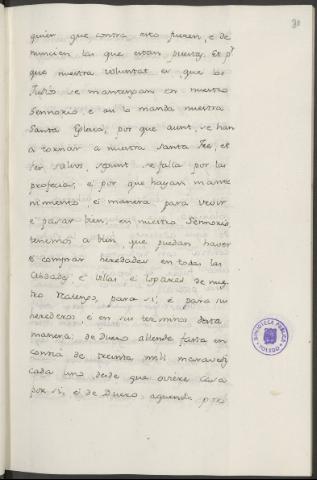 30
quier que contra esto fueren, e de
nuncien las que estan puestas. Et pr
que nuestra voluntat es que los
Judios se mantengan en nuestro
Sennorio, e asi lo manda nuestra
Santa Eglesia, por que aunt se han
a tornar a nuestra Santa Fee, et
ser salvos, segunt se falla por las
profecias, é por que hayan mante
nimiento é manera para vevir
e pasar bien, en nuestro Sennorio,
tenemos a bien, que puedan haver
é comprar heredades en todas las
Cibdades, é Villas, é logares de nues
tro Realengo, para si, é para sus
herederos, é en sus terminos desta
manera: de Duero allende fasta en
contia de treinta mill maravedis
cada uno desde que oviere Casa
por si, é de Duero aquende por
BIBLIOTECA PUBLICA
TOLEDO